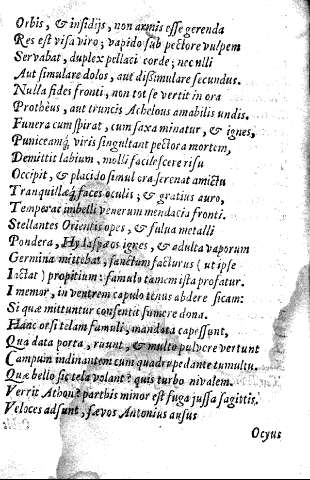 Orbis, & insidijs, non armis esse gerenda
Res est visa viro; vapido sub pectore vulpem
Servabat, duplex pellaci corde; nec ulli
Aut simulare dolos, aut dißimulare secundus.
Nulla fides fronti, non tot se vertit in ora
Prothèus, aut truncis Achelous amabilis undis.
Funera cum spirat, cum saxa minatur, & ignes,
Puniceamq́ viris singultant pectora mortem,
Demittit labium, molli facilescere risu
Occipit, & placido simul ora serenat amictu
Tranquillæq́ faces oculis; & gratius auro,
Temperat imbelli venerum mendacia fronti.
Stellantes Orientis opes, & fulua metalli
Pondera, Hydaspæos ignes, & adulta vaporum
Germina mittebat, sanctum facturus (ut ipse
Iactat) propitium: famulo tamen ista profatur.
I memor, in ventrem capulo tenus abdere sicam:
Si quæ mittuntur consentit sumere dona.
Haac orsi telam famuli, mandata capessunt,
Qua data porta, ruunt, & multo pulvere vertunt
Campum indinantem cum quadrupedante tumultu.
Quæ bello sic tela volant? quis turbo nivalem.
Verrit Athon? parthis minor est fuga jussa sagittis.
Veloces adsunt, sævos Antonius ausus
Ocyus